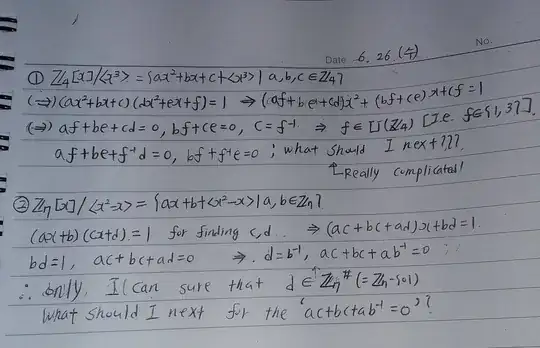 No.
Date 6. 26. (수)
① ℤ₄[x]/<x³> = {ax²+bx+c+<x³> | a,b,c ∈ ℤ₄}
(⇒) (ax²+bx+c)(dx²+ex+f)=1 ⇒ (af+be+cd)x² + (bf+ce)x+cf=1
(⇒) af+be+cd=0, bf+ce=0, c=f⁻¹ ⇒ f∈U(ℤ₄) [I.e. f∈{1,3}].
af+be+f⁻¹d=0, bf+f⁻¹e=0 ; what should I next???
Really complicated!
② ℤ₇[x]/<x²-x> = {ax+b+<x²-x> | a,b∈ℤ₇}
(ax+b)(cx+d)=1 for finding c,d.. ⇒ (ac+bc+ad)x+bd=1.
bd=1, ac+bc+ad=0 ⇒. d=b⁻¹, ac+bc+ab⁻¹=0
∴ only, I can sure that d ∈ ℤ₇# (=ℤ₇-{0})
What should I next for the 'ac+bc+ab⁻¹=0'?